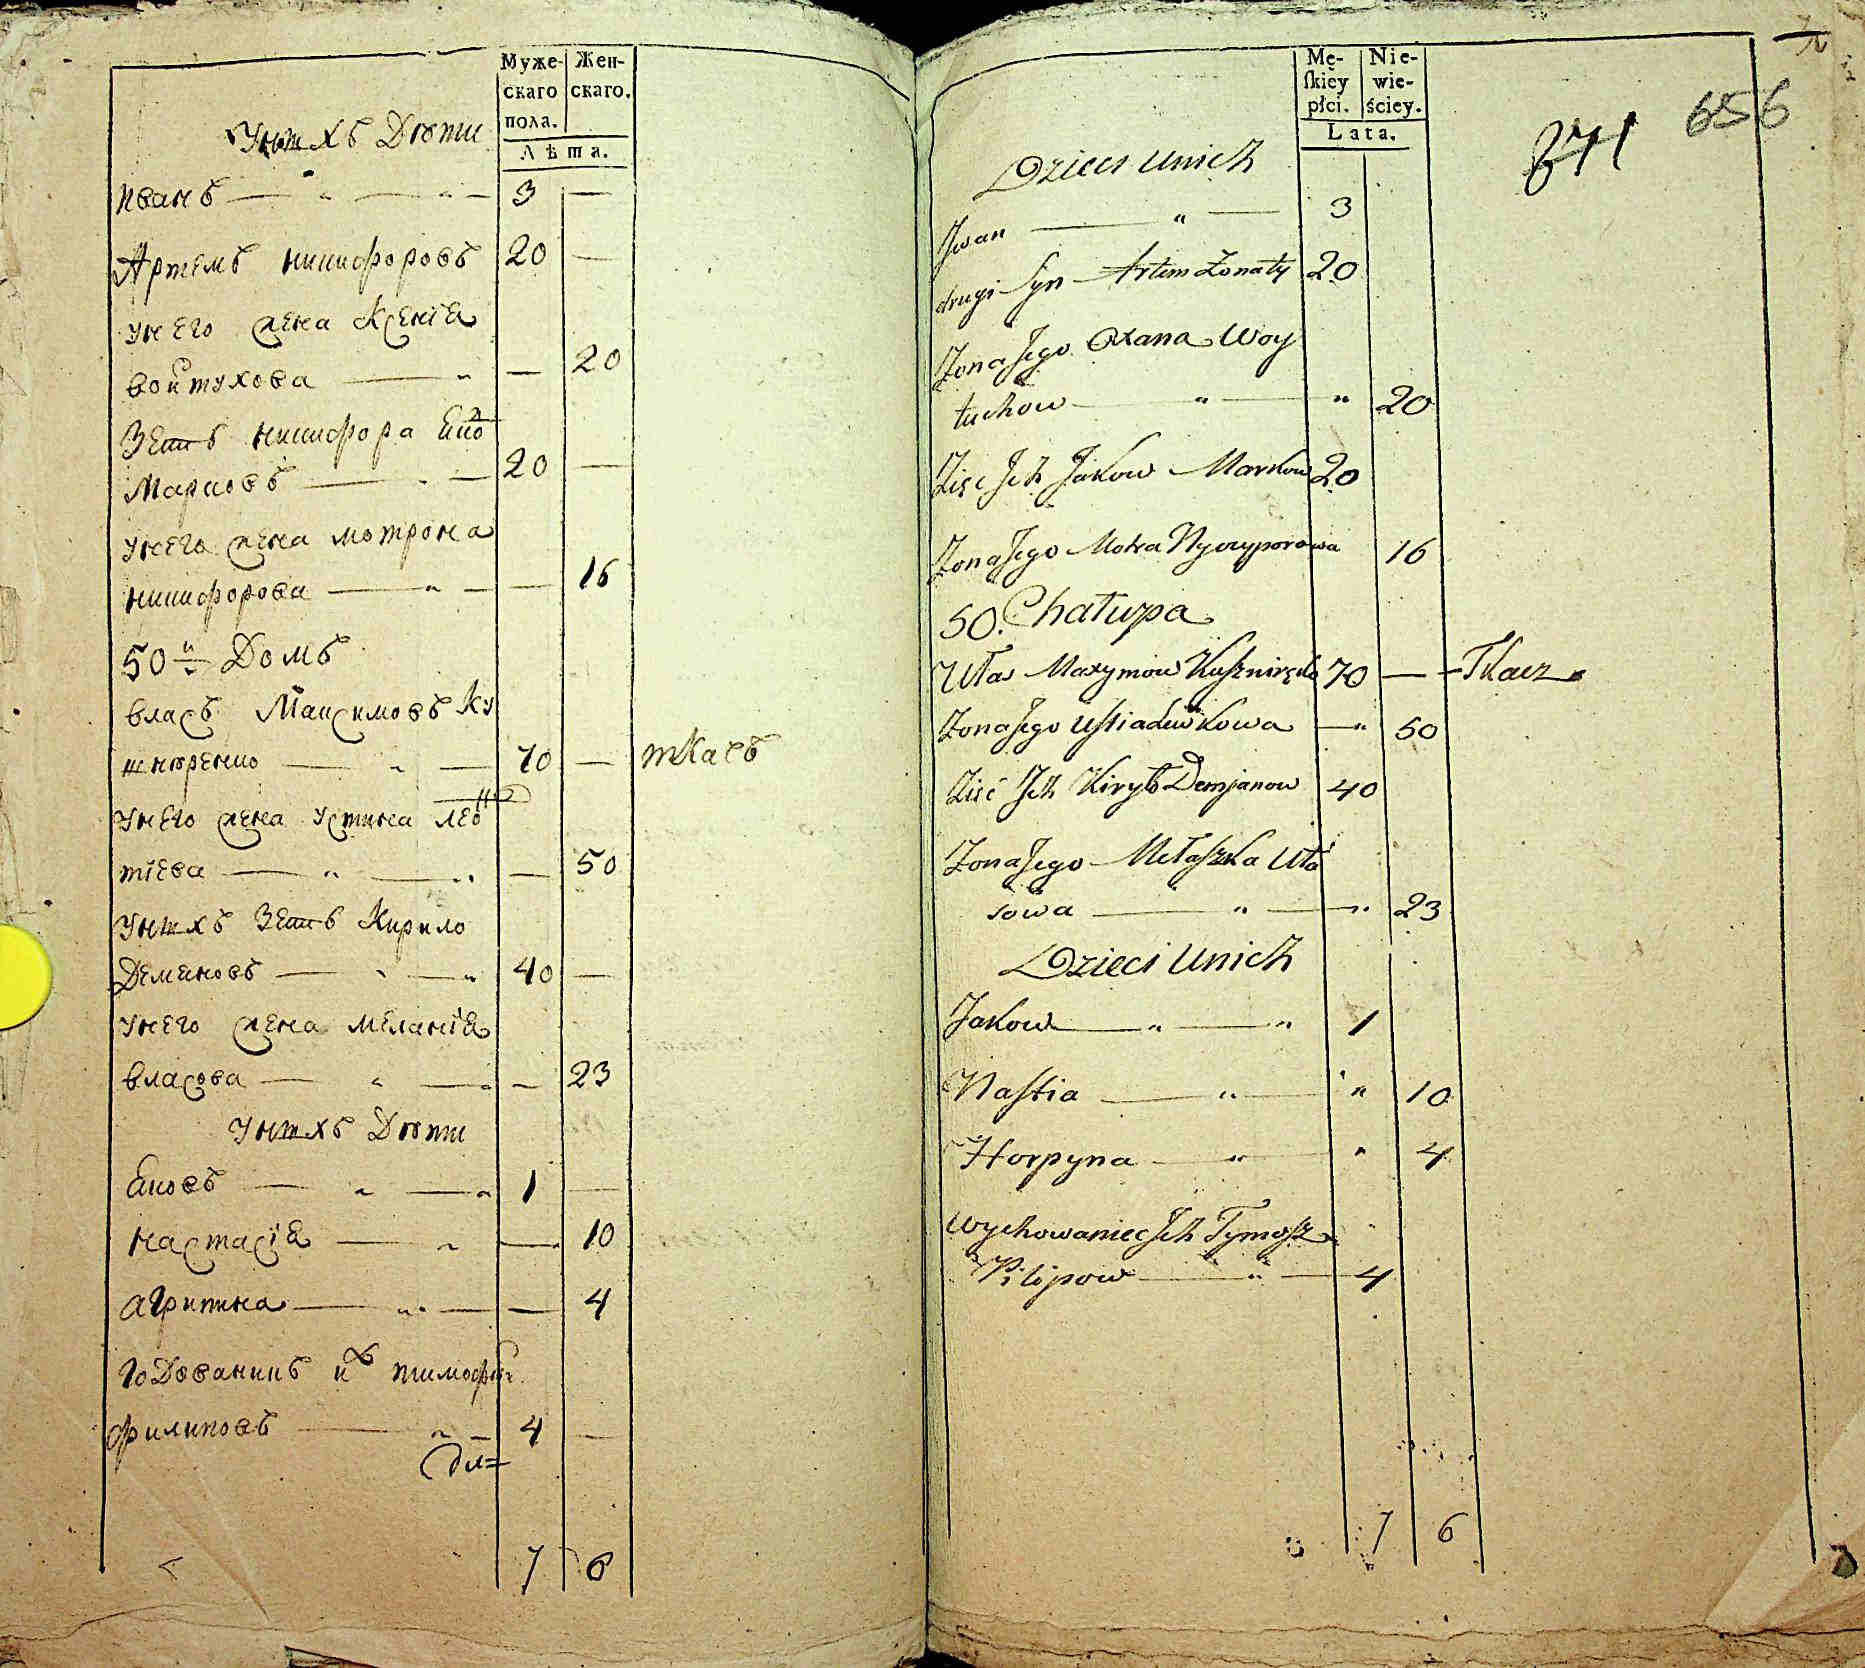 Муже-
скаго
пола.
Жен-
скаго.
Лѣта.
Унихъ Дѣти
Иванъ — „ — „ — 3 —
Артемъ никифоровъ 20 —
унего жена Ксенія
войтухова — „ — 20
Зеть никифора Еко
Марковъ — „ — 20 —
унего жена мотрона
никифорова — „ — — 16
50й Домъ
власъ Маѯимовъ Ку
шнѣренко — „ — 70 — ткачь
унего жена устина лео
тіева — „ — „ — 50
унихъ Зеть Кирило
Демяновъ — „ — „ 40 —
унего жена меланія
власова — „ — „ — 23
унихъ Дѣти
Яковъ — „ — „ 1 —
настасія — „ — 10
агрипина — „ — — 4
годованикъ их тимофѣй
филиповъ — „ — 4 —
7 6
Mę-
ſkiey
płci.
Nie-
wie-
ściey.
Lata.
656
841
Dzieci unich
Jwan — „ — 3
drugi Syn Artem Żonaty 20
Żona Jego Oxana Woy
tuchow — „ — „ 20
Zięć Jch Jakow Markow 20
Żona Jego Motra Nyczyporowa 16
50. Chałupa
Ułas Maxymow Kuſznireńko 70 — — Tkacz
Żona Jego Uſtia Lewkowa — „ 50
Zięć Jch Kiryło Demjanow 40
Żona Jego Mełaſzka Uła
sowa — „ — „ 23
Dzieci Unich
Jakow — „ — „ 1
Naſtia — „ — „ 10
Horpyna — „ — „ 4
Wychowaniec Jch Tymoſz
Pilipow — „ — 4
7 6